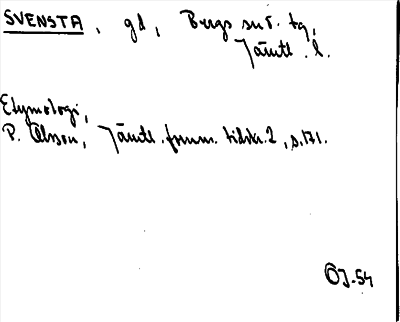 SVENSTA, gd, Bergs sn o. tg,
Jämtl. l.
Etymologi,
P. Olsson, Jämtl. fornm. tidskr. 2, s. 171.
ÖJ-54